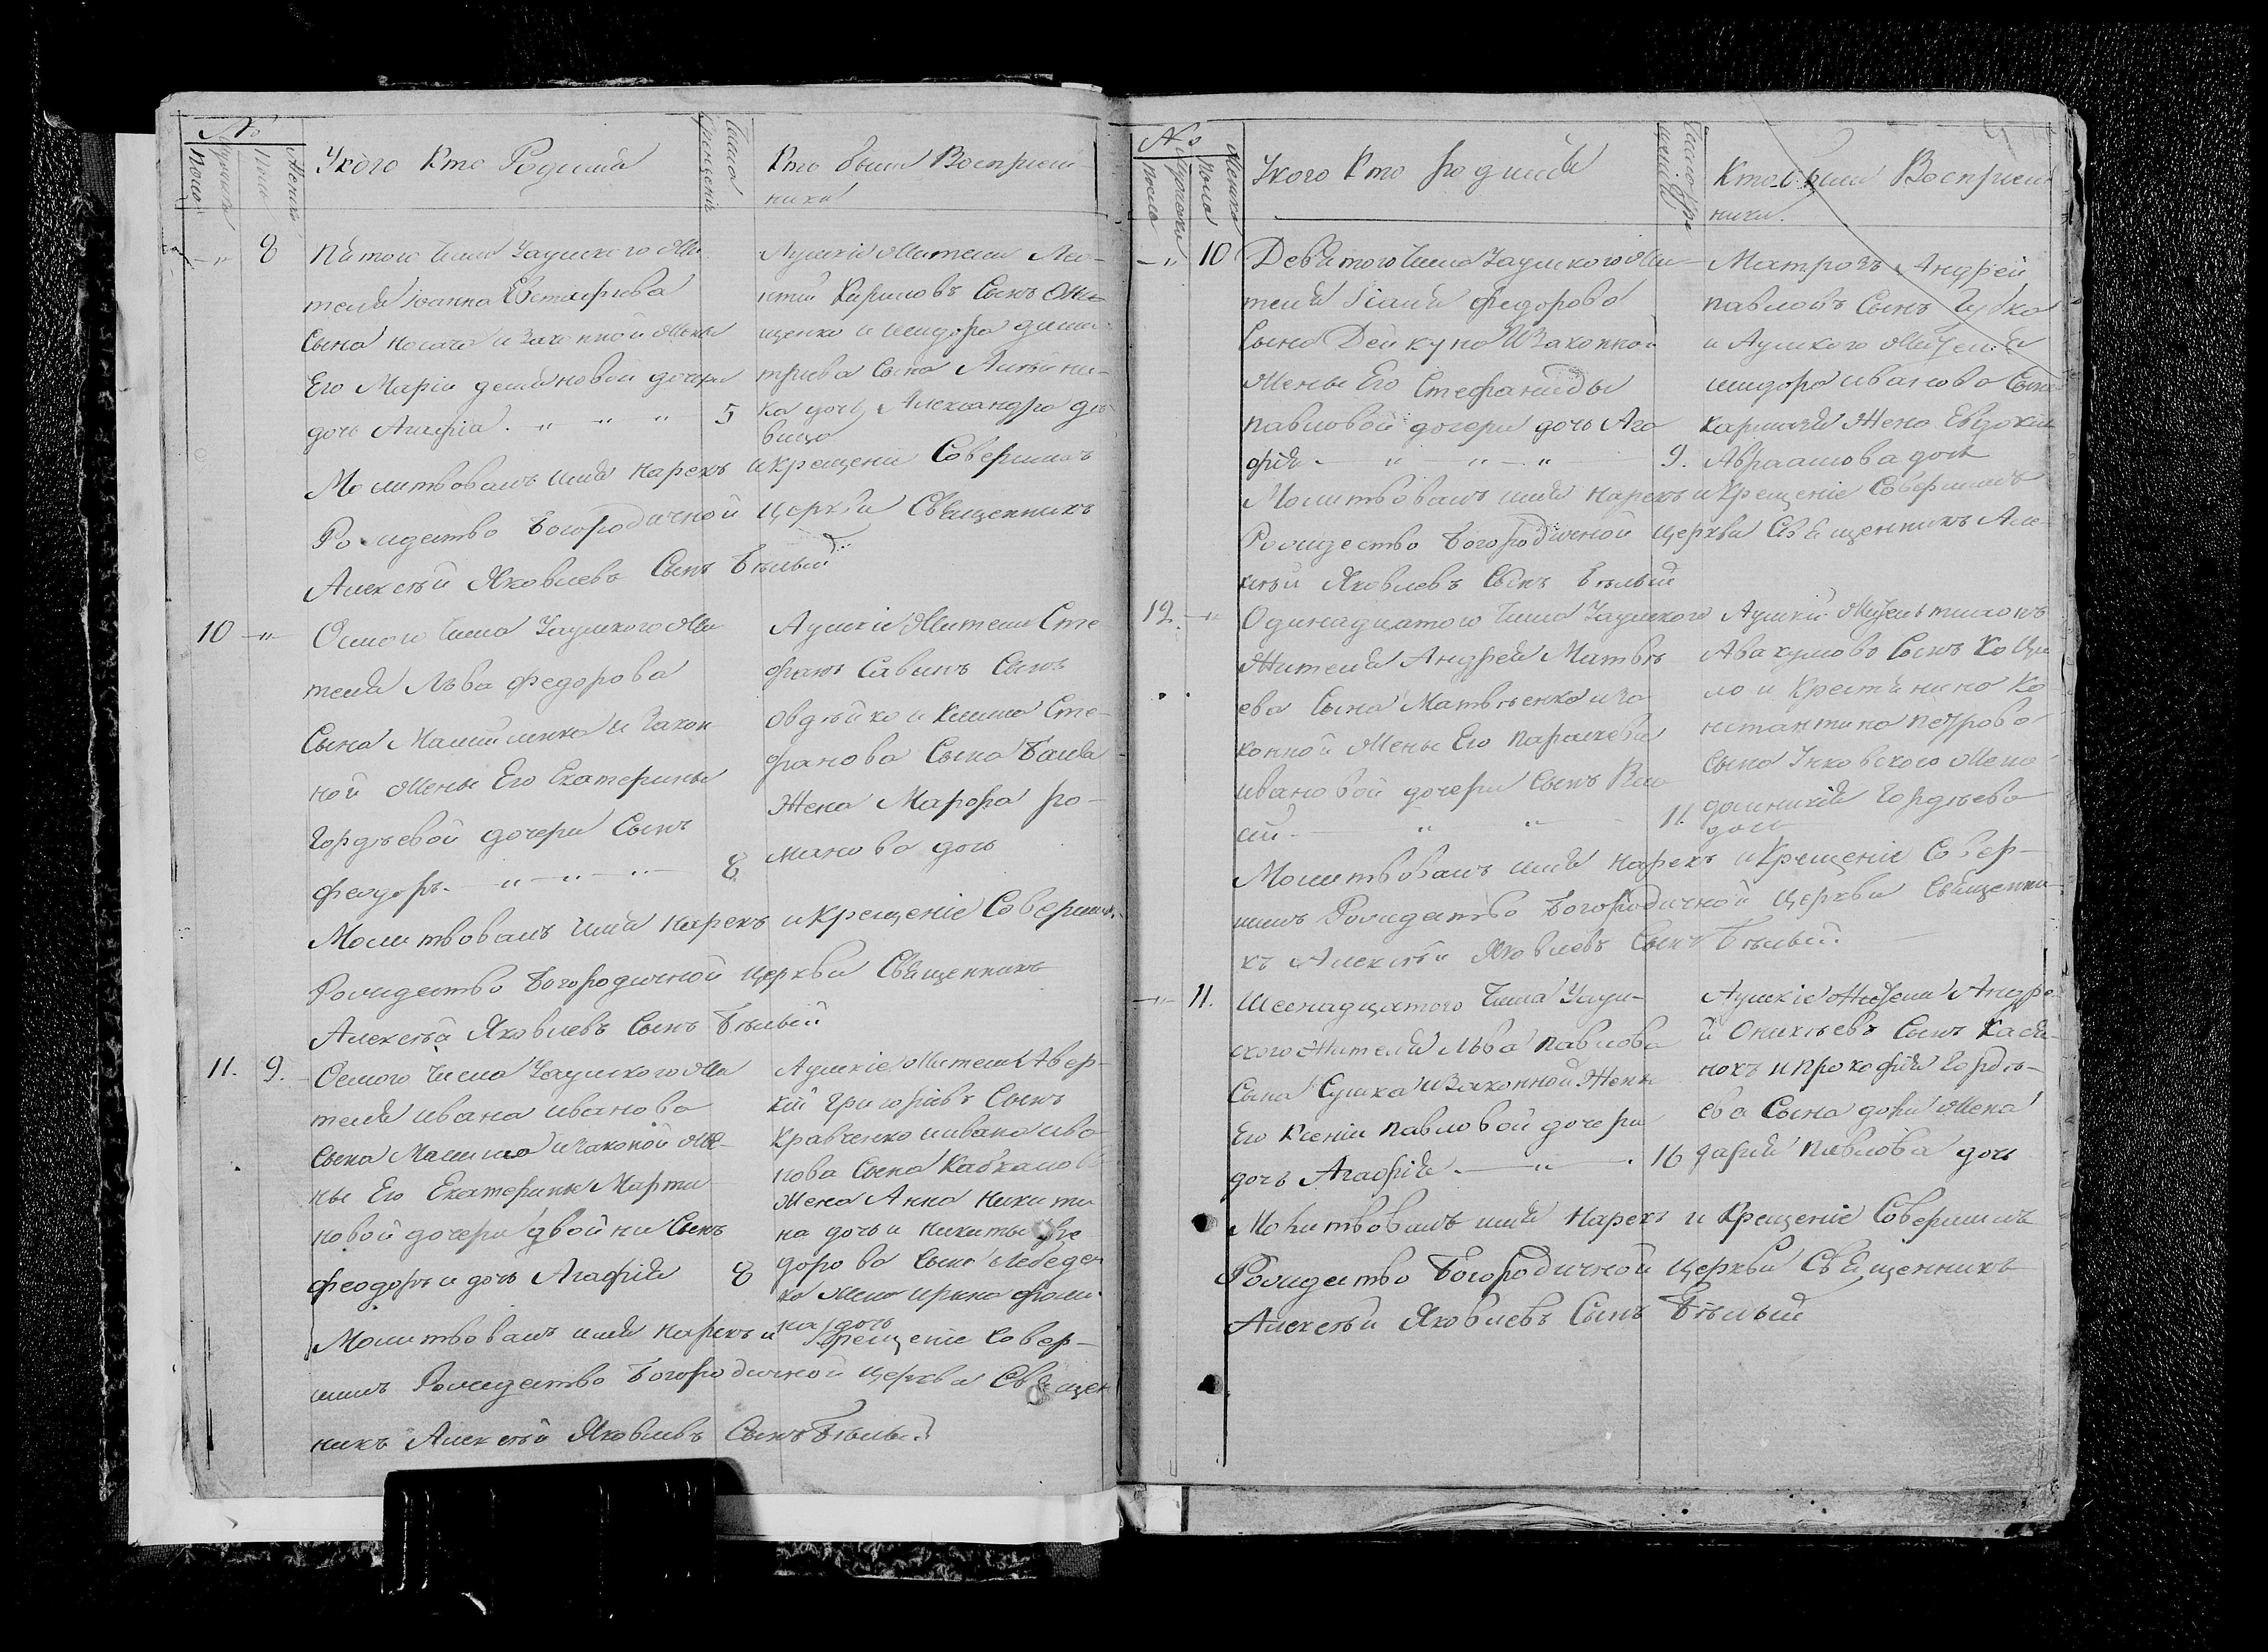 №
Мужеска Пола
Женска Пола
У кого кто Родился
Число Крещенія
Кто были Восприем-
ники
-„- 8 Пятого Числа Уаушкого Жи
теля Іоанна Евстафиева
Сына Носача и Законной Жены
Его Маріи демяновой дочери
дочь Агафія . „ „ „ 5
Аушкіе Жители Лео-
нтий Кириловъ Сынъ
щенко и Исидора дими-
триева Сына
ка дочь Александра дѣ-
вица
Молитвовалъ имя Нарекъ и крещение Совершилъ
Рождество Богородичной Церкви Священникъ
Алексѣй Яковлевъ Сынъ Бѣлый
10 -„- Осмого Числа Уаушкого Жи
теля Льва федорова
Сына и Закон
ной Жены Его Екатерины
Гордѣевой дочери Сынъ
феодоръ. — „ — „ — „ — 8
Аушкіе Жители Сте
фанъ Савинъ Сынъ
Овдѣйко и Клима Сте-
фанова Сына
Жена Марфа Ро-
манова дочь
Молитвовалъ имя Нарекъ и крещеніе Соверши.
Рождество Богородичной Церкви Священникъ
Алексѣй Яковлевъ Сынъ Бѣлый
11. 9. Осмого Числа Уаушкого Жи
теля Ивана Иванова
Сына и Законой Же-
ны Его Екатерины Марти
новой дочери двойни Сынъ
феодоръ и дочь Агафия 8
Аушкіе Жители Авер-
кій Григориевъ Сынъ
Кравченко и Ивана Ива
нова Сына
Жена Анна Никити
на дочь и Никиты фе
дорова Сына Лебеден
ка Жена Ирина фоми-
на дочь
Молитвовалъ имя Нарекъ и Крещеніе Совер-
шилъ Рождество Богородичной Церкви Священ
никъ Алексѣй Яковлевъ Сынъ Бѣлый
№
Мужска Пола
Женска Пола
У кого Кто Родился
Число Кре
щенія
Кто были Восприем
ники.
-„- 10 Девятого Числа Уаушкого Жи
теля Ісаия Федорова
Сына Дейкуна и Законной
Жены Его Стефаниды
павловой дочери дочь Ага
фія - „ „ — „ 9.
Матрозъ Андрей
павловъ Сынъ Губка
и Аушкого Жителя
Исидора Иванова Сына
Жена Евдокия
Авраамова дочь
Молитвовалъ имя Нарекъ и Крещеніе Совершилъ
Рождество Богородичной Церкви Священникъ Але-
ксѣй Яковлевъ Сынъ Бѣлый
12. -„- Одинадцатого Числа Уаушкого
Жителя Андрея Матвѣ
ева Сына Матвѣенка и за
конной Жены Его параскевы
ивановой дочери Сынъ
„ „ 11.
Аушкій Житель тихонъ
Авакумова Сынъ
ло и Крестянина Ко
нстантина петрова
Сына Жена
Гордѣева
дочь
Молитвовалъ имя Нарекъ и Крещеніе Совер-
шилъ Рождество Богородичной Церкви Священни-
къ Алексѣй Яковлевъ Сынъ Бѣлый.
-„- 11. Шеснадцятого Числа Уауш-
ского Жителя Льва павлова
Сына Сушка и Законной Жены
Его Ксеніи павловой дочери
дочь Агафія. — „ — . 16
Аушкіе Жители Андре
й Оникѣевъ Сынъ
нокъ и Прокофія Гордѣ-
ева Сына Жена
дария павлова дочь
Молитвовалъ имя Нарекъ и Крещеніе Совершилъ
Рождество Богородичной Церкви Священникъ
Алексѣй Яковлевъ Сынъ Бѣлый